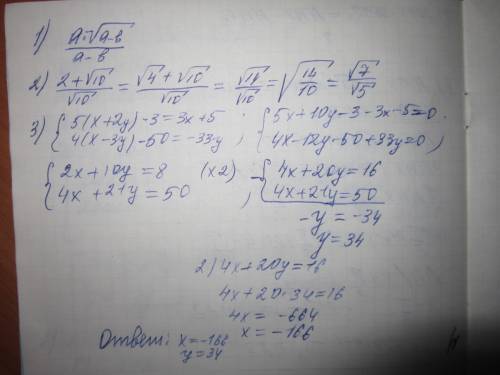 1) a·√(a-b) / (a-b)
2) (2+√10)/√10 = (√4+√10)/√10 = √14/√10 = √(14/10) = √7/√5
3) { 5(x+2y)-3=3x+5 ; { 5x+10y-3-3x-5=0
{ 4(x-3y)-50=-33y ; { 4x-12y-50+33y=0,
{ 2x+10y=8 (x2) - { 4x+20y=16
{ 4x+21y=50 , { 4x+21y=50
-y = -34
y=34
2) 4x+20y=16
4x+20·34=16
4x = -664
x = -166
Ответ: x=-166
y=34